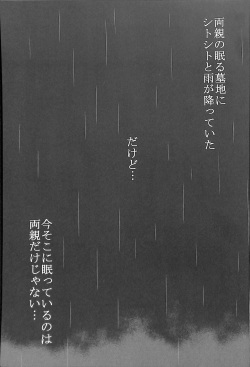 両親の眠る墓地に
シトシトと雨が降っていた
だけど…
今そこに眠っているのは
両親だけじゃない…